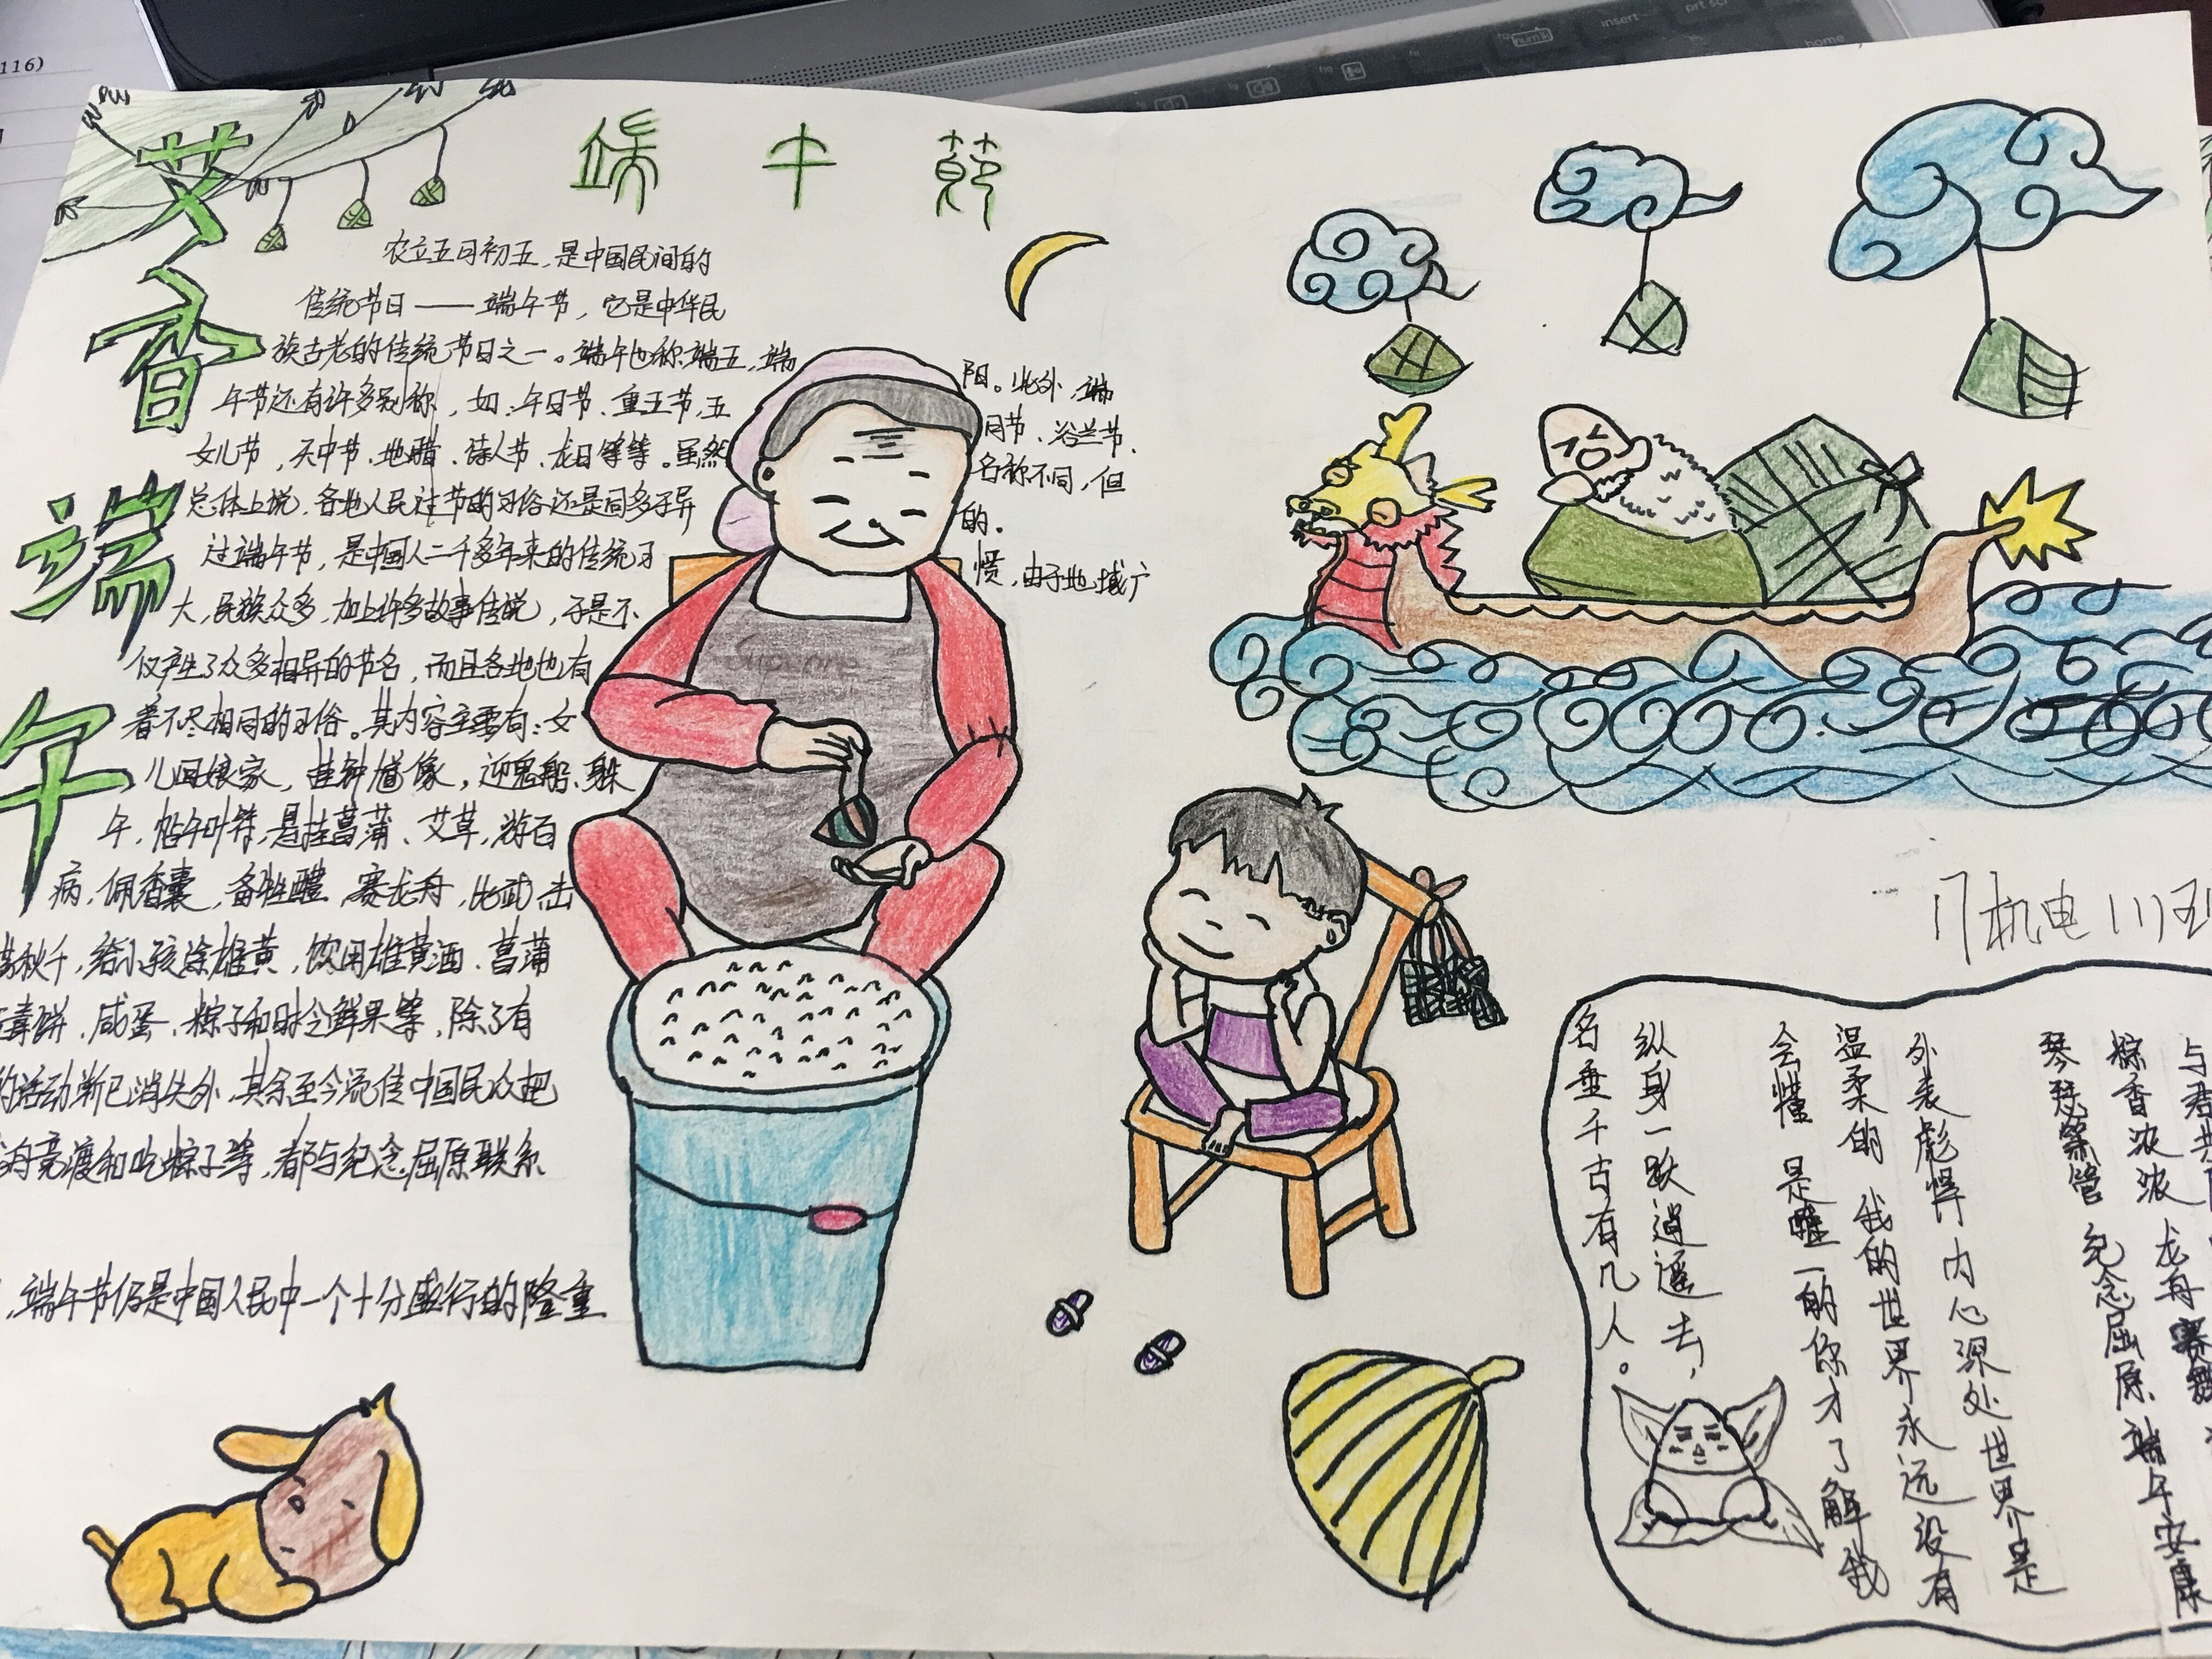 116)
insert
prt scr
num lk
home
艾香端午
端午節
农立五月初五,是中国民间的
传统节日——端午节,它是中华民
族古老的传统节日之一。端午也称端五,端阳。此外,端
午节还有许多别称,如:午日节、重五节,五月节、浴兰节、
女儿节,天中节、地腊、诗人节、龙日等等。虽然名称不同,但
总体上说,各地人民过节的习俗还是同多于异的。
过端午节,是中国人二千多年来的传统习惯,由于地域广
大,民族众多,加上许多故事传说,于是不
仅产生了众多相异的节名,而且各地也有
着不尽相同的习俗。其内容主要有:女
儿回娘家,挂钟馗像,迎鬼船、躲
午,帖午叶符,悬挂菖蒲、艾草,游百
病,佩香囊,备牲醴,赛龙舟,比武,击
荡秋千,给小孩涂雄黄,饮用雄黄酒、菖蒲
毒饼、咸蛋、粽子和时令鲜果等,除了有
的活动渐已消失外,其余至今流传中国民众把
舟竞渡和吃粽子等,都与纪念屈原联系
,端午节仍是中国人民中一个十分盛行的隆重
17机电
粽香浓浓 龙舟赛
琴瑟箫管 纪念屈原 端午安康
外表彪悍 内心深处世界是
温柔的 我的世界永远没有
会懂 是唯一的你才了解我
纵身一跃逍遥去,
名垂千古有几人。